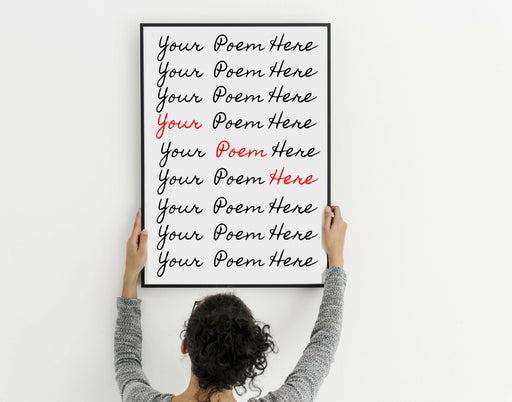 Your Poem Here
Your Poem Here
Your Poem Here
Your Poem Here
Your Poem Here
Your Poem Here
Your Poem Here
Your Poem Here
Your Poem Here